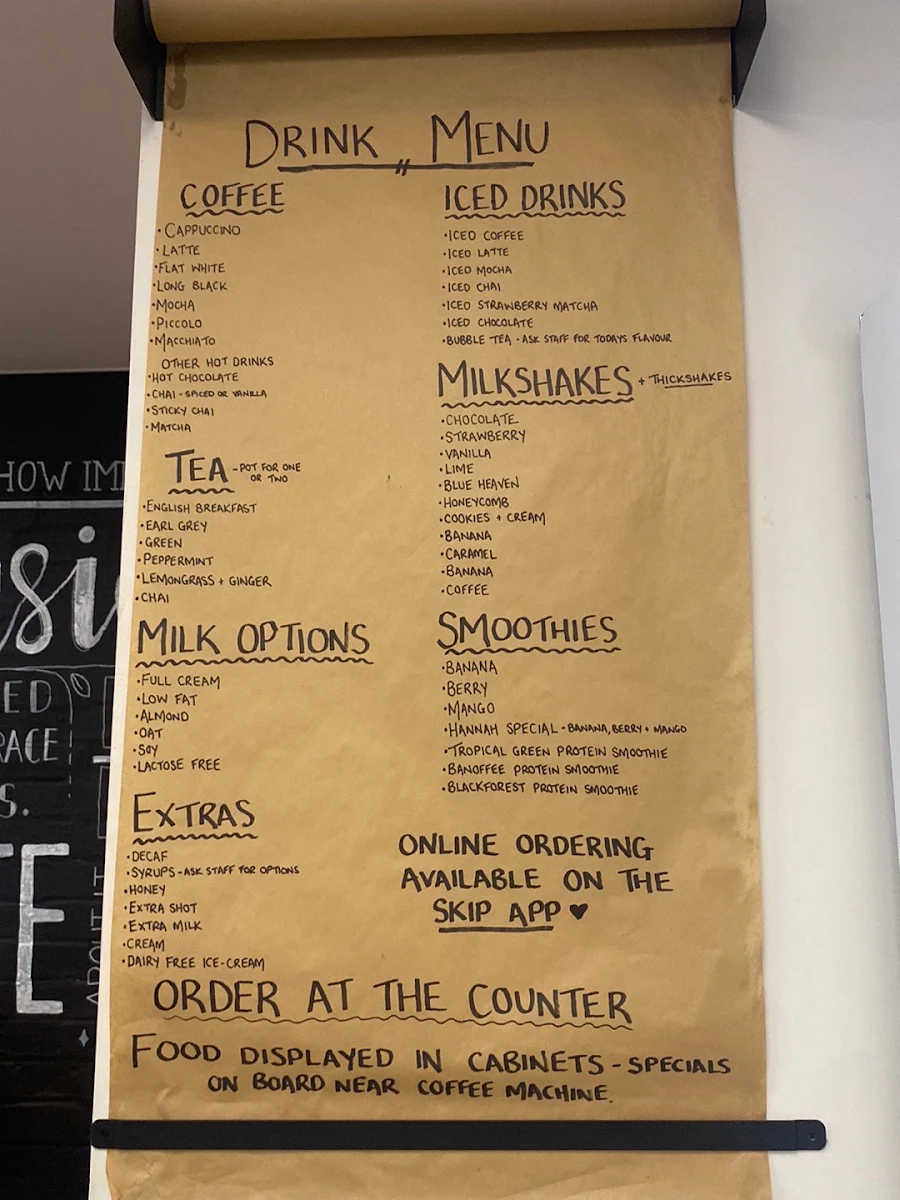 DRINK MENU
COFFEE
• CAPPUCCINO
• LATTE
• FLAT WHITE
• LONG BLACK
• MOCHA
• PICCOLO
• MACCHIATO
OTHER HOT DRINKS
• HOT CHOCOLATE
• CHAI - SPICED OR VANILLA
• STICKY CHAI
• MATCHA
TEA - POT FOR ONE
OR TWO
• ENGLISH BREAKFAST
• EARL GREY
• GREEN
• PEPPERMINT
• LEMONGRASS + GINGER
• CHAI
MILK OPTIONS
• FULL CREAM
• LOW FAT
• ALMOND
• OAT
• SOY
• LACTOSE FREE
EXTRAS
• DECAF
• SYRUPS - ASK STAFF FOR OPTIONS
• HONEY
• EXTRA SHOT
• EXTRA MILK
• CREAM
• DAIRY FREE ICE-CREAM
ICED DRINKS
• ICED COFFEE
• ICED LATTE
• ICED MOCHA
• ICED CHAI
• ICED STRAWBERRY MATCHA
• ICED CHOCOLATE
• BUBBLE TEA - ASK STAFF FOR TODAYS FLAVOUR
MILKSHAKES + THICKSHAKES
• CHOCOLATE
• STRAWBERRY
• VANILLA
• LIME
• BLUE HEAVEN
• HONEYCOMB
• COOKIES + CREAM
• BANANA
• CARAMEL
• BANANA
• COFFEE
SMOOTHIES
• BANANA
• BERRY
• MANGO
• HANNAH SPECIAL - BANANA, BERRY + MANGO
• TROPICAL GREEN PROTEIN SMOOTHIE
• BANOFFEE PROTEIN SMOOTHIE
• BLACKFOREST PROTEIN SMOOTHIE
ONLINE ORDERING
AVAILABLE ON THE
SKIP APP ♥
ORDER AT THE COUNTER
FOOD DISPLAYED IN CABINETS - SPECIALS
ON BOARD NEAR COFFEE MACHINE.
HOW
ABOUT IT